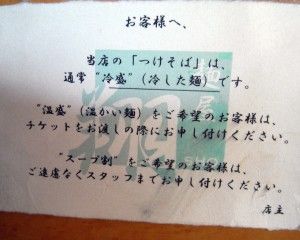 お客様へ、
当店の「つけそば」は、
通常“冷盛”(冷した麺)です。
“温盛”(温かい麺)をご希望のお客様は、
チケットをお渡しの際にお申し付けください。
“スープ割”をご希望のお客様は、
ご遠慮なくスタッフまでお申し付けください。
店主
麺屋
翔
SHO